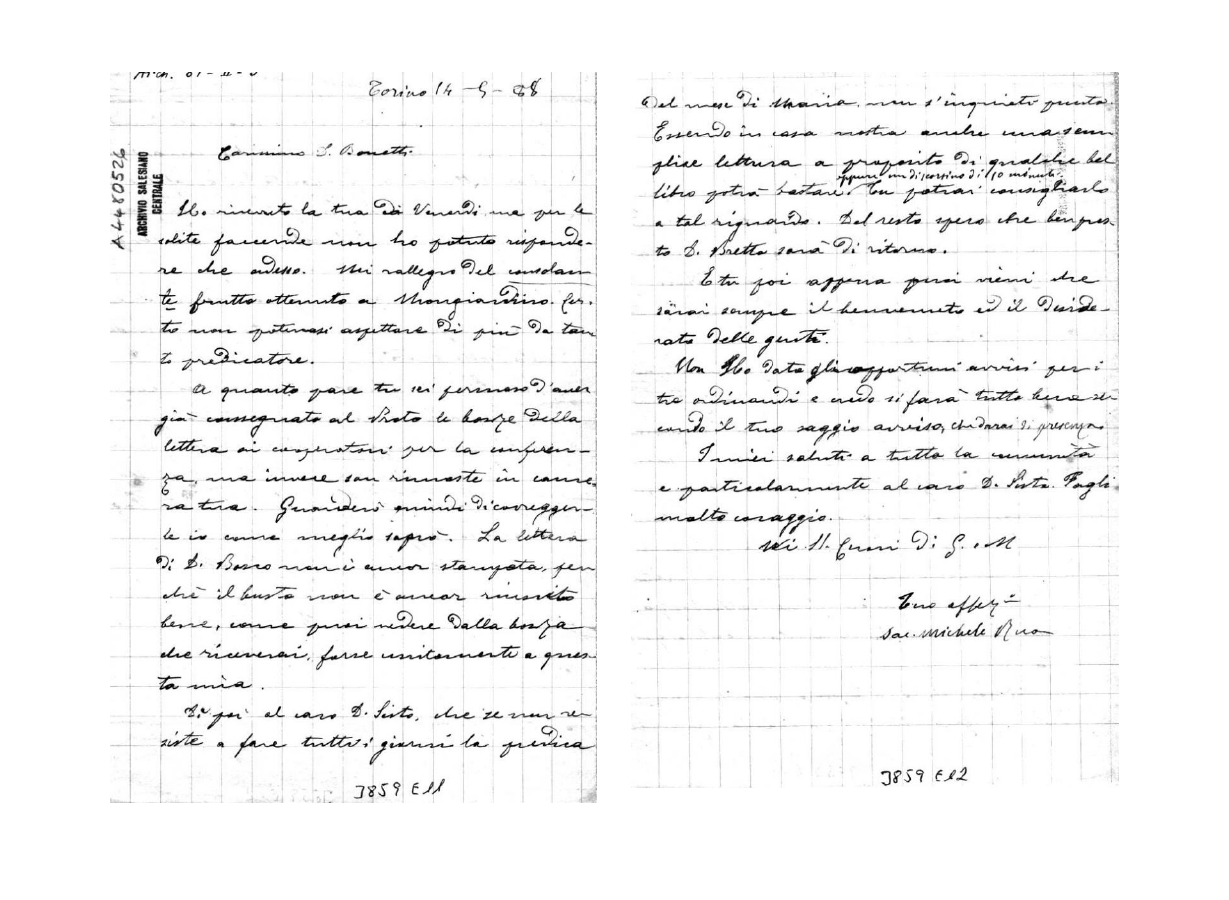 Arch. 61-II-3
Torino 14 - 5 - 88
A4480526
ARCHIVIO SALESIANO
CENTRALE
Carissimo D. Bonetti
Ho ricevuto la tua di Venerdì ma per le
solite faccende non ho potuto risponde-
re che adesso. Mi rallegro del consolan
te frutto ottenuto a Mongiardino. Cer-
to non potevasi aspettare di più da tan
to predicatore.
A quanto pare tu sei persuaso d'aver
già consegnato al Visto le bozze della
lettera ai cooperatori per la conferen-
za, ma invece son rimaste in came-
ra tua. Guarderò quindi di corregger-
le io come meglio saprò. La lettera
di D. Bosco non è ancor stampata, per
chè il busto non è ancor riuscito
bene, come puoi vedere dalla bozza
che riceverai, forse unitamente a ques-
ta mia.
Di' poi al caro D. Sisto, che se non re-
siste a fare tutti i giorni la predica
J859 E11
del mese di Maria, non s'inquieti punto.
Essendo in casa nostra anche una sem
plice lettura a proposito di qualche bel
oppure un discorsino di 10 minuti.
libro potrà bastare. Tu potrai consigliarlo
a tal riguardo. Del resto spero che benpres-
to D. Bretto sarà di ritorno.
E tu poi appena puoi vieni che
sarai sempre il benvenuto ed il deside-
rato delle genti.
Ho dato gli opportuni avvisi per i
tre ordinandi e credo si farà tutto bene se-
condo il tuo saggio avviso, che darai di presenza
I miei saluti a tutta la comunità
e particolarmente al caro D. Sisto. Fagli
molto coraggio.
Nei SS. Cuori di G. e M
Tuo affez.
Sac. Michele Rua
J859 E12